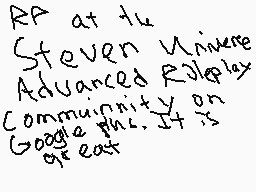 RP at the
Steven Universe
Advanced Roleplay
Commuinnity on
Google plus. It is
great